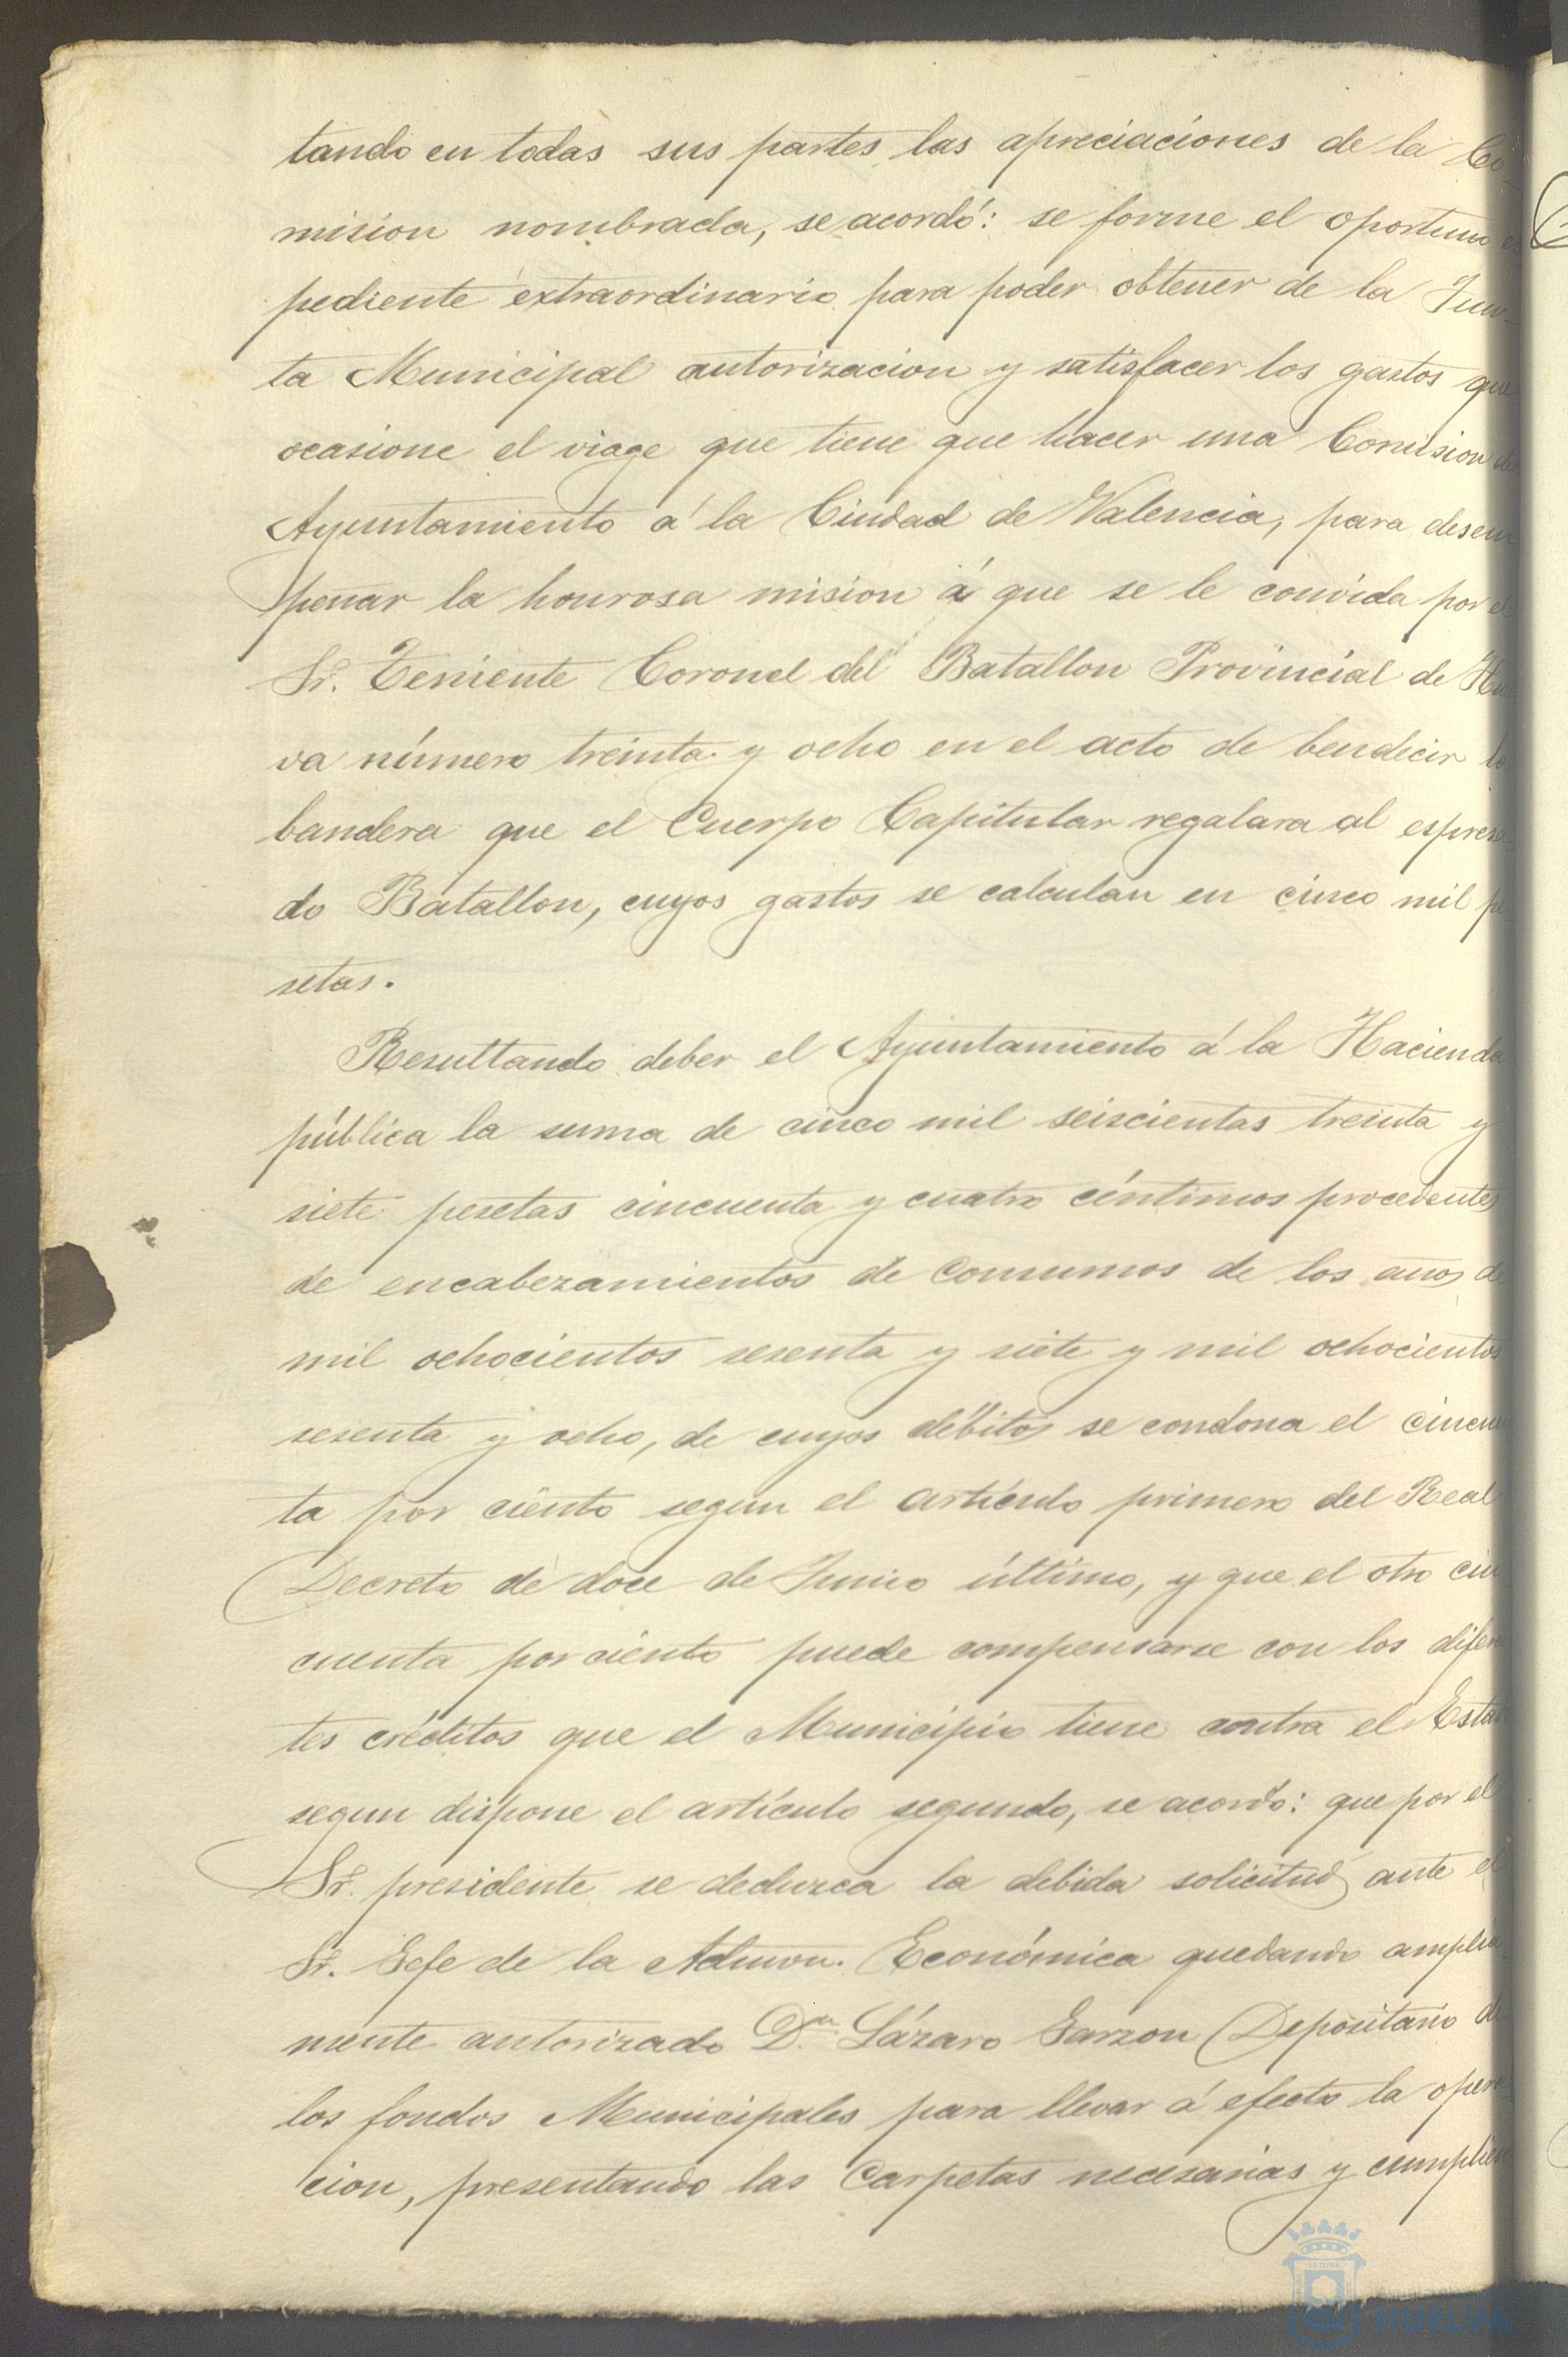 tando en todas sus partes las apreciaciones de la Co-
mision nombrada, se acordó: se forme el oportuno es
pediente extraordinario para poder obtener de la Jun-
ta Municipal autorizacion y satisfacer los gastos que
ocasione el viage que tiene que hacer una Comision del
Ayuntamiento á la Ciudad de Valencia, para desem
peñar la honrosa mision á que se le convida por el
Sr. Teniente Coronel del Batallon Provincial de Huel
va número treinta y ocho en el acto de bendecir la
bandera que el Cuerpo Capitular regalara al espresa
do Batallon, cuyos gastos se calculan en cinco mil pe
setas.
Resultando deber el Ayuntamiento á la Hacienda
pública la suma de cinco mil seiscientas treinta y
siete pesetas cincuenta y cuatro céntimos procedentes
de encabezamientos de Consumos de los años de
mil ochocientos sesenta y siete y mil ochocientos
sesenta y ocho, de cuyos débitos se condona el cincuen
ta por ciento segun el artículo primero del Real
Decreto de doce de Junio último, y que el otro cin
cuenta por ciento puede compensarse con los diferen
tes créditos que el Municipio tiene contra el Estado
segun dispone el artículo segundo, se acordó: que por el
Sr. presidente se deduzca la debida solicitud ante el
Sr. Gefe de la Admon. Económica quedando amplia
mente autorizado Dn. Lázaro Garzon Depositario de
los fondos Municipales para llevar á efecto la opera
cion, presentando las Carpetas necesarias y cumplien
HUELVA